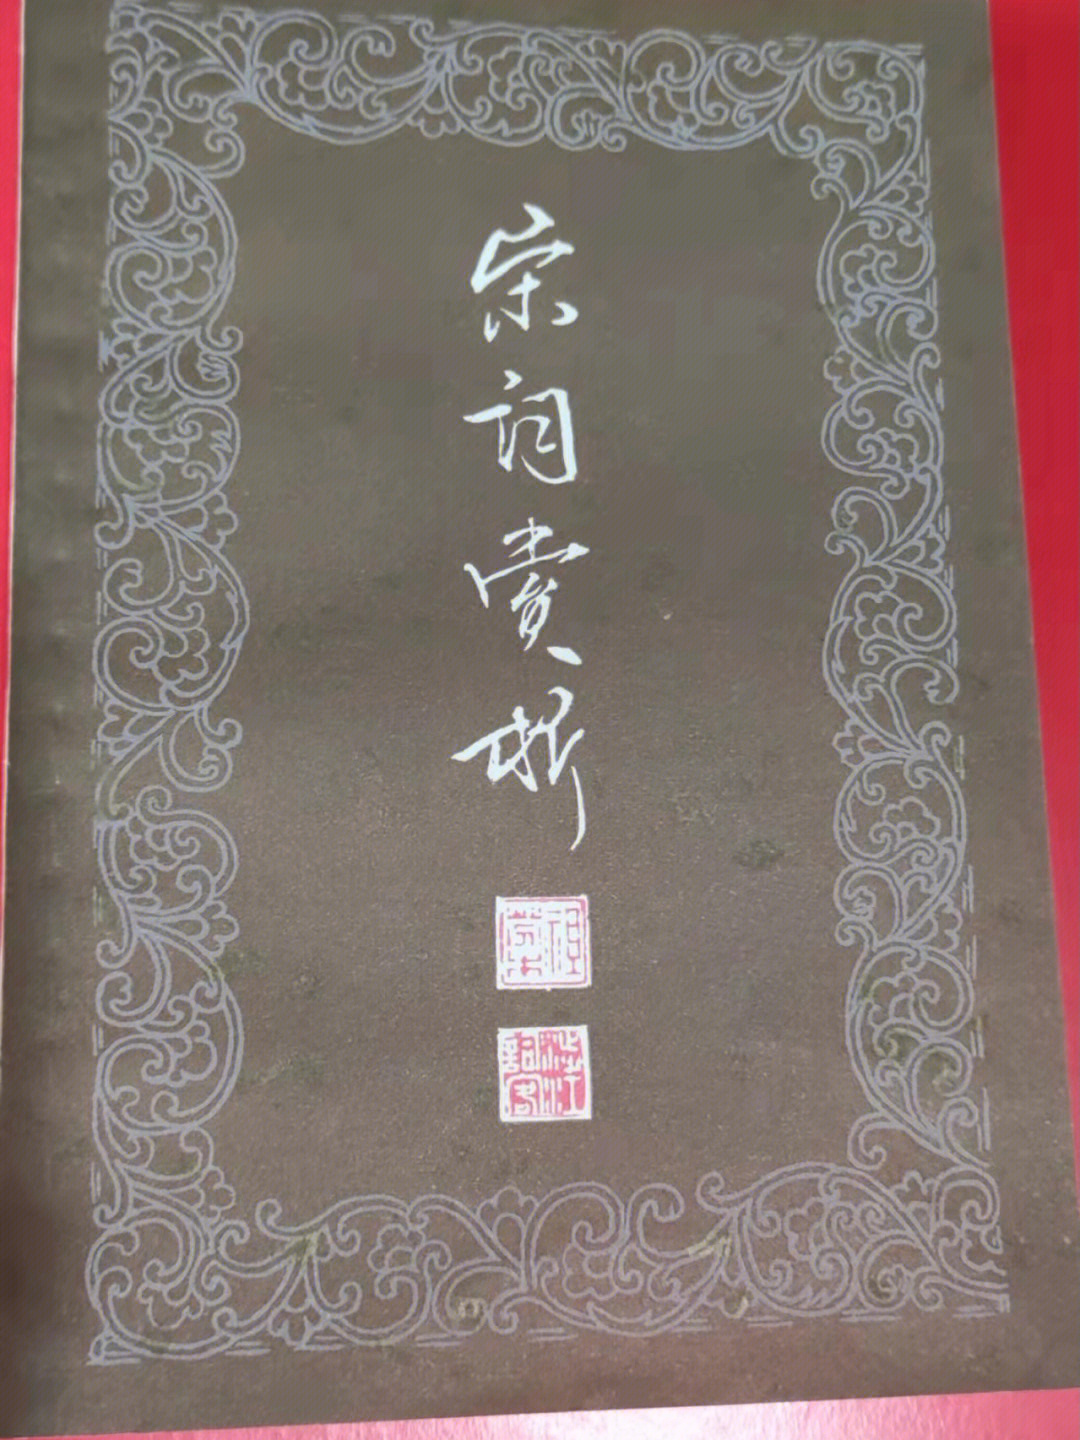 宋词赏析